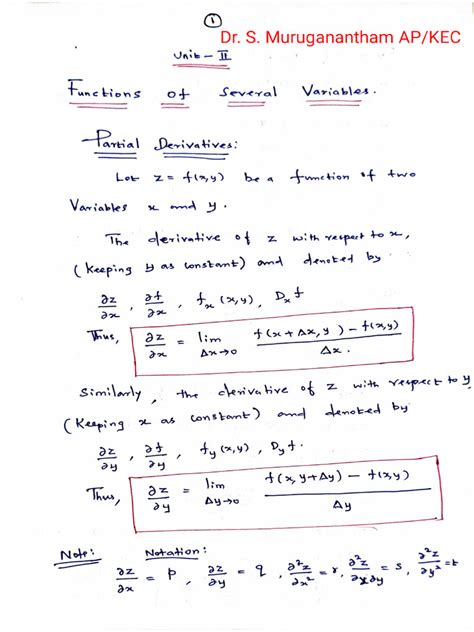 ①
Dr. S. Muruganantham AP/KEC
Unit - II
Functions of Several Variables.
Partial Derivatives:
Let z = f(x,y) be a function of two
Variables x and y.
The derivative of z with respect to x,
(keeping y as constant) and denoted by
∂z/∂x , ∂f/∂x , f_x (x,y), D_x f
Thus, ∂z/∂x = lim Δx→0 f(x+Δx, y) - f(x,y) / Δx.
Similarly, the derivative of z with respect to y
(keeping x as constant) and denoted by
∂z/∂y , ∂f/∂y , f_y (x,y), D_y f.
Thus, ∂z/∂y = lim Δy→0 f(x, y+Δy) - f(x,y) / Δy
Note: Notation:
∂z/∂x = p, ∂z/∂y = q, ∂²z/∂x² = r, ∂²z/∂x∂y = s, ∂²z/∂y² = t